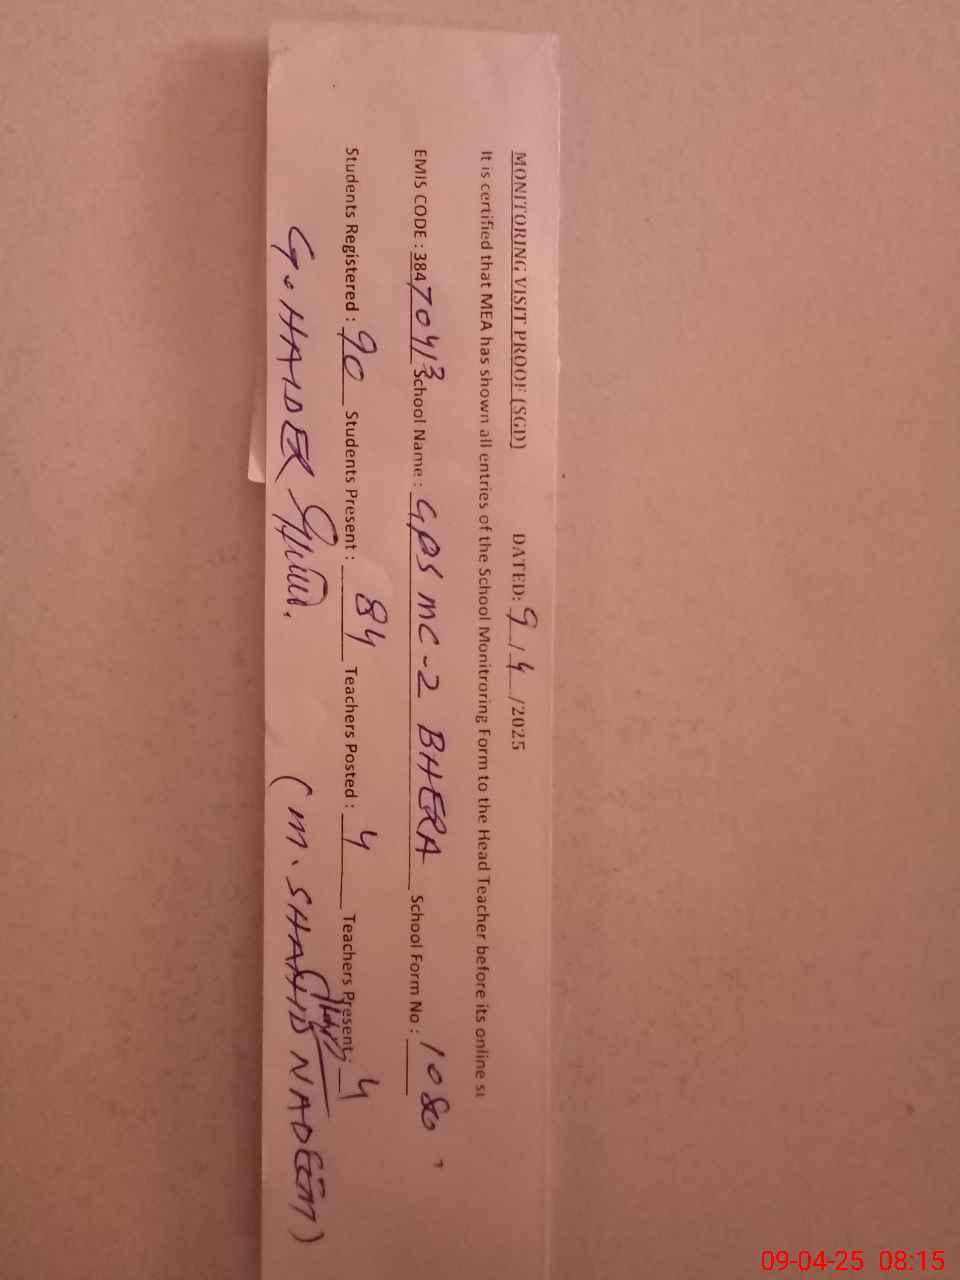 MONITORING VISIT PROOF [SGD] DATED: 9/4/2025
It is certified that MEA has shown all entries of the School Monitroring Form to the Head Teacher before its online
EMIS CODE : 38470413 School Name : GPS MC-2 BHERA School Form No : 1080
Students Registered : 90 Students Present : 84 Teachers Posted : 4 Teachers Present : 4
G. HAIDER (M. SHAHID NADEEM)
09-04-25 08:15